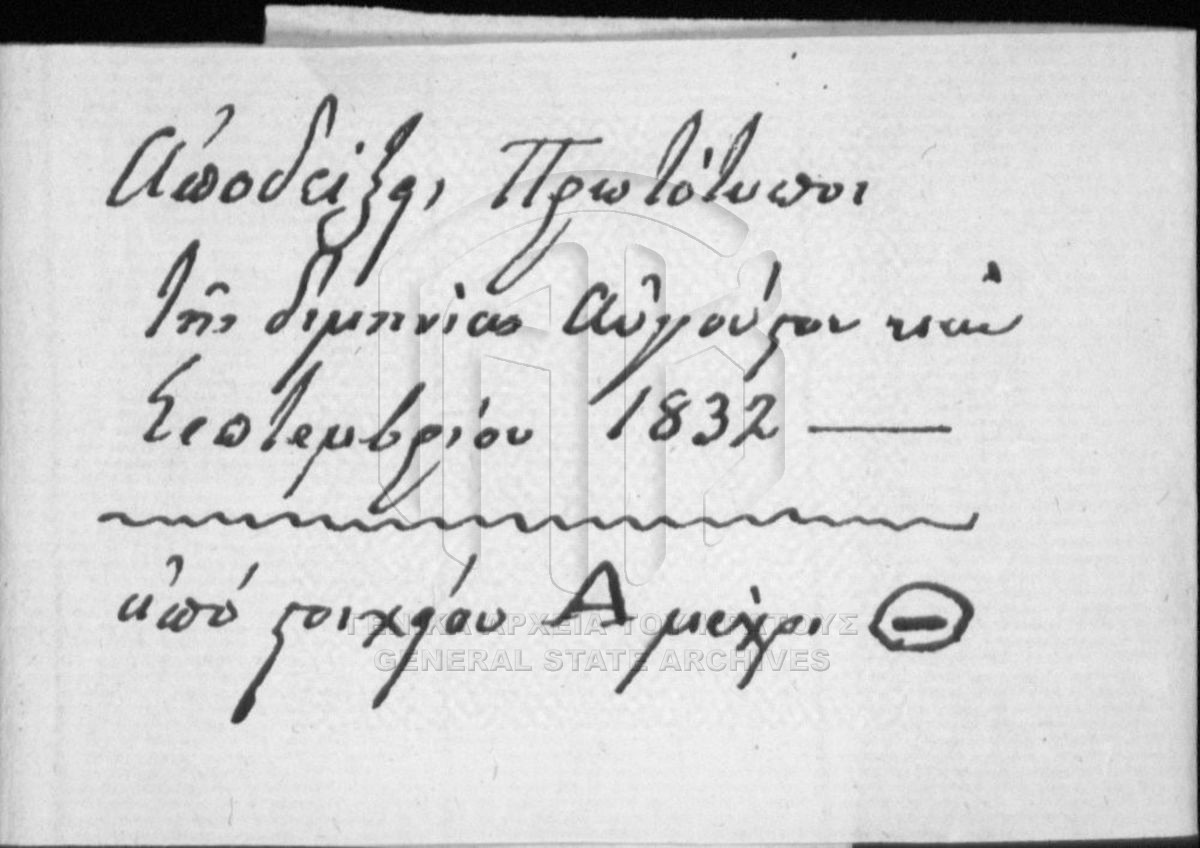 Ἀποδείξεις Πρωτότυποι
τῆς διμηνίας Αὐγούστου καὶ
Σεπτεμβρίου 1832 —
ἀπό στοιχείου Α μέχρι Θ
ΓΕΝΙΚΑ ΑΡΧΕΙΑ ΤΟΥ ΚΡΑΤΟΥΣ
GENERAL STATE ARCHIVES